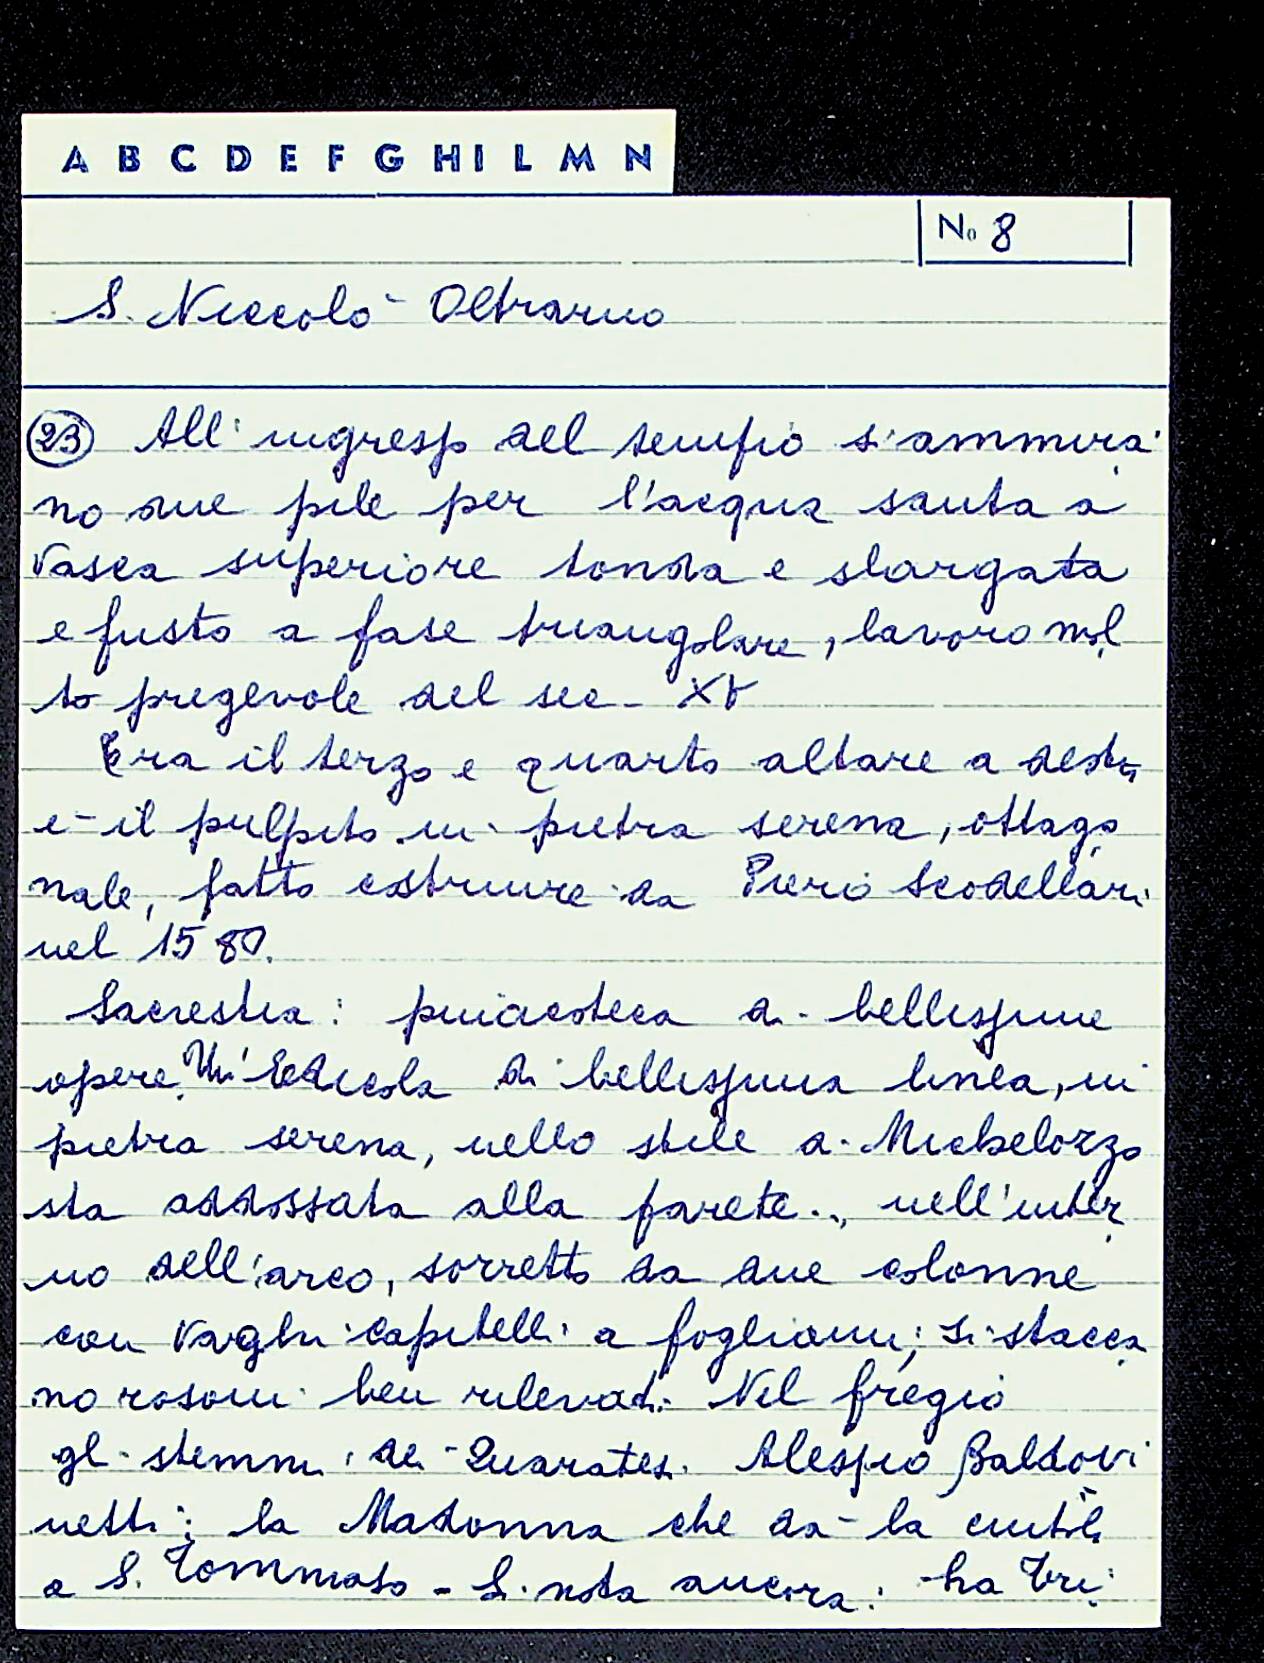 A B C D E F G H I L M N
No 8
S. Niccolò Oltrarno
23 All'ingresso del tempio s'ammira
no due pile per l'acqua santa a
vasca superiore tonda e slargata
e fusto a fase triangolare, lavoro mol
to pregevole del sec. XV
Era il terzo e quarto altare a destra
è il pulpito in pietra serena, ottago
nale, fatto costruire da Piero Scodellari
nel 1580.
Sacrestia: pinacoteca di bellissime
opere. Un'Edicola di bellissima linea, in
pietra serena, nello stile di Michelozzo
sta addossata alla parete., nell'inter
no dell'arco, sorretto da due colonne
con vaghi capitelli a fogliami, si stacca
no rosoni ben rilevati. Nel fregio
gli stemmi dei Quaratesi. Alessio Baldovi
netti: la Madonna che dà la cintola
a S. Tommaso - Si nota ancora: -ha Tri